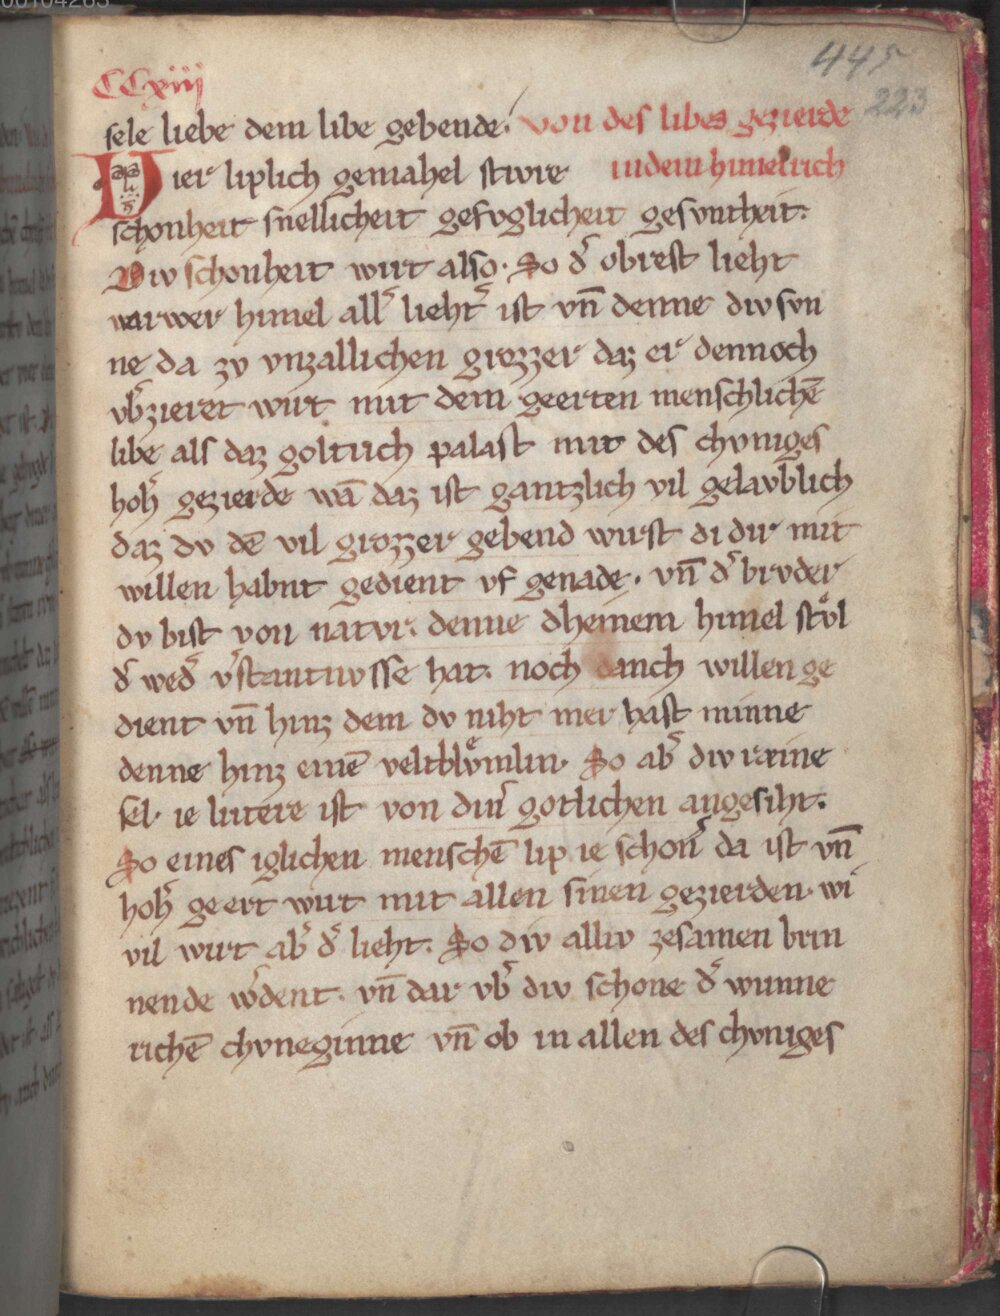 445
223
CCxiii
sele liebe dem libe gebende. von des libes gezierde
Vier liplich gemahel stivre in dem himelrich
schonheit snellicheit gefvglicheit gesvntheit.
Div schonheit wirt also. So dˢ obrest lieht
himel allˢ liehtˢ ist vn̄ denne div svn
ne da zv vnzallichen grozzer daz er dennoch
vbˢzieret wirt mit dem geerten menschlichē
libe als daz goltrich palast mit des chvniges
hohˢ gezierde wā daz ist gantzlich vil gelavblich
daz dv dē vil grozzer gebend wirst di dir mit
willen habnt gedient vf genade. vn̄ dˢ brvder
dv bist von natvr. denne dheinem himel stvͦl
dˢ wedˢ vˢstantnvsse hat. noch danch willen ge
dient vn̄ hinz dem dv niht mer hast minne
denne hinz einē veltblvͤmlin. So abˢ div reine
sel. ie lutere ist von dinˢ gotlichen angesiht.
So eines iglichen menschē lip ie schonˢ da ist vn̄
hohˢ geert wirt mit allen sinen gezierden. wi
vil wirt abˢ dˢ lieht. So div alliv zesamen brin
nende wˢdent. vn̄ dar vbˢ div schone dˢ wunne
richē chvneginne vn̄ ob in allen des chvniges